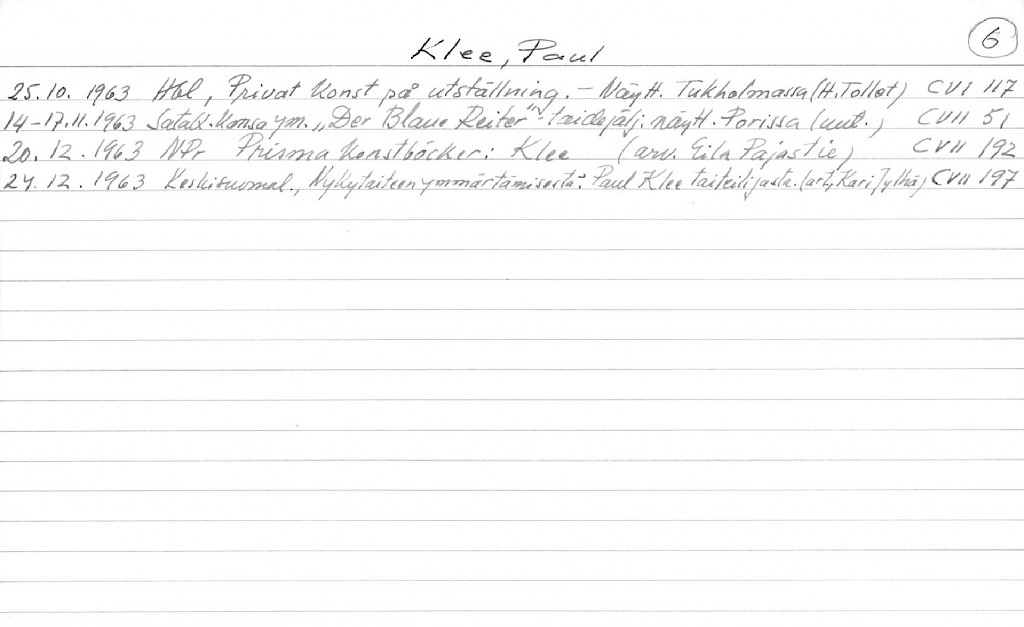 6
Klee, Paul
25.10. 1963 Hbl, Privat Konst på utställning. – Näytt. Tukholmassa (H. Tollet) CVI 117
14-17.11.1963 Satak. Kansa ym. „Der Blaue Reiter"-taidejälj. näytt. Porissa (uut.) CVII 51
20. 12. 1963 NPr Prisma Konstböcker: Klee (arv. Eila Pajastie) CVII 192
24. 12. 1963 Keskisuomal., Nykytaiteen ymmärtämisestä: Paul Klee taiteilijasta. (art, Kari Jylhä) CVII 197